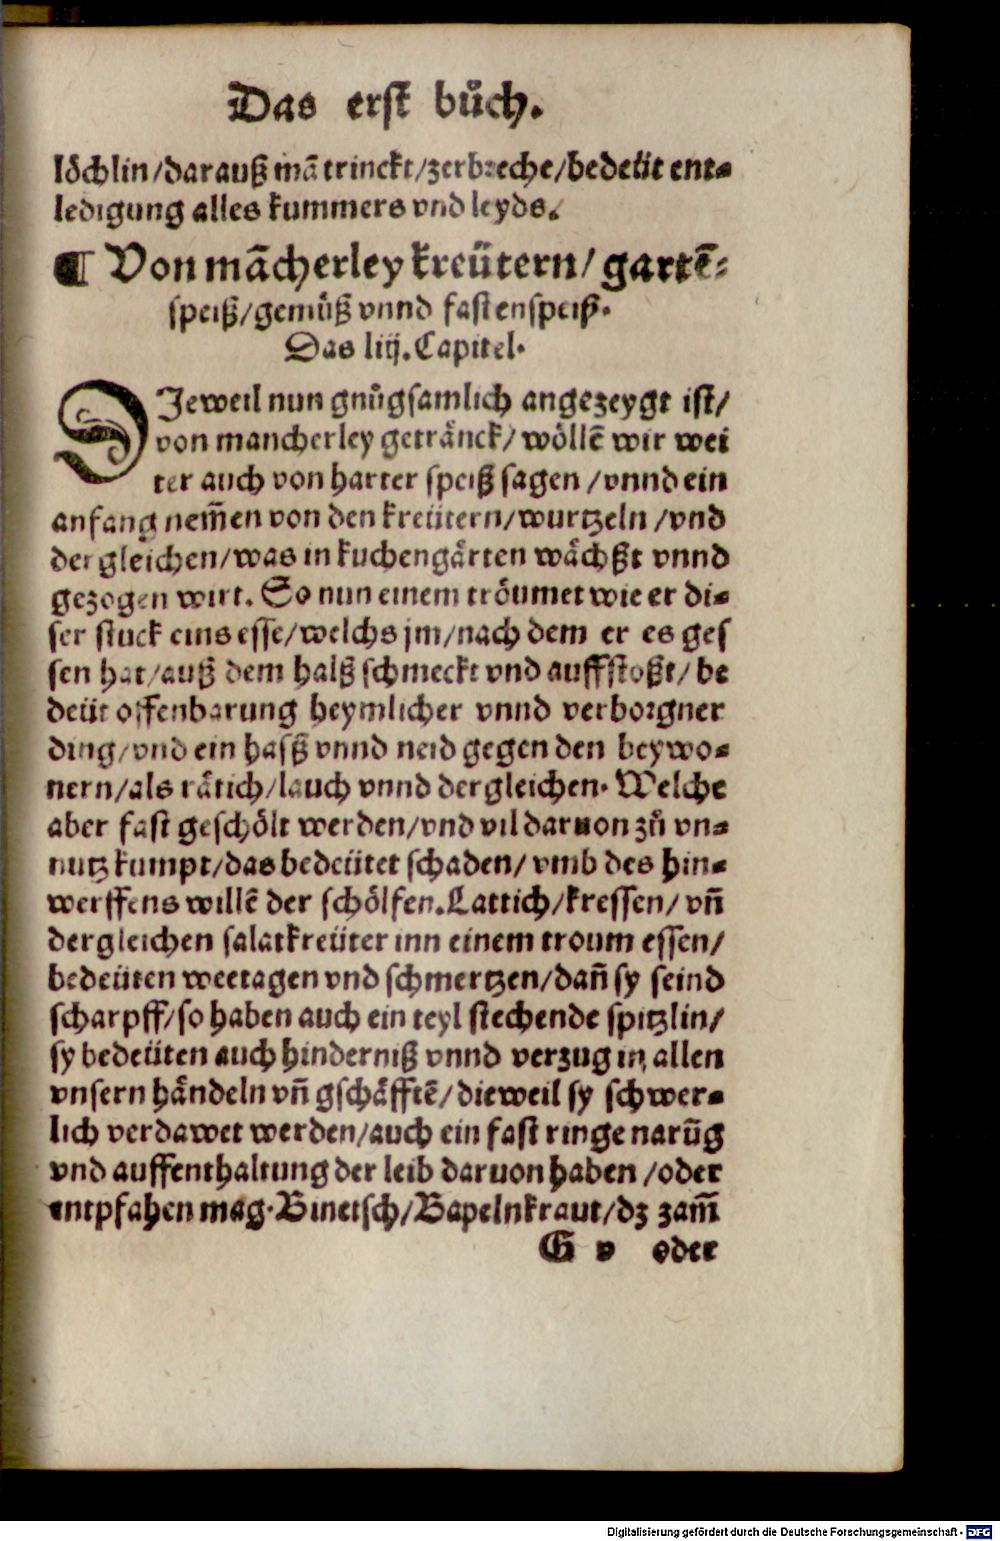 Das erst bůch.
löchlin/darauß mã trinckt/zerbreche/bedeüt ent-
ledigung alles kummers vnd leyds.
¶ Von mãcherley kreütern/ gartẽ-
speiß/gemůß vnnd fastenspeiß.
Das liij. Capitel.
DIeweil nun gnůgsamlich angezeygt ist/
von mancherley getränck/ wöllẽ wir wei
ter auch von harter speiß sagen /vnnd ein
anfang nem̃en von den kreütern/wurtzeln /vnd
der gleichen/was in kuchengärten wächßt vnnd
gezogen wirt. So nun einem tröumet wie er di-
ser stuck eins esse/welchs jm/nach dem er es ges
sen hat/auß dem halß schmeckt vnd auffstoßt/ be
deüt offenbarung heymlicher vnnd verborgner
ding/vnd ein hasß vnnd neid gegen den beywo-
nern/als rätich/lauch vnnd dergleichen. Welche
aber fast geschölt werden/vnd vil daruon zů vn-
nutz kumpt/das bedeütet schaden/ vmb des hin-
werffens willẽ der schölfen. Lattich/kressen/ vñ
dergleichen salatkreüter inn einem troum essen/
bedeüten weetagen vnd schmertzen/dañ sy seind
scharpff/so haben auch ein teyl stechende spitzlin/
sy bedeüten auch hinderniß vnnd verzug in allen
vnsern händeln vñ gschäfftẽ/dieweil sy schwer-
lich verdawet werden/auch ein fast ringe narũg
vnd auffenthaltung der leib daruon haben /oder
entpfahen mag. Binetsch/Bapelnkraut/dz zam̃
G v oder
Digitalisierung gefördert durch die Deutsche Forschungsgemeinschaft - DFG